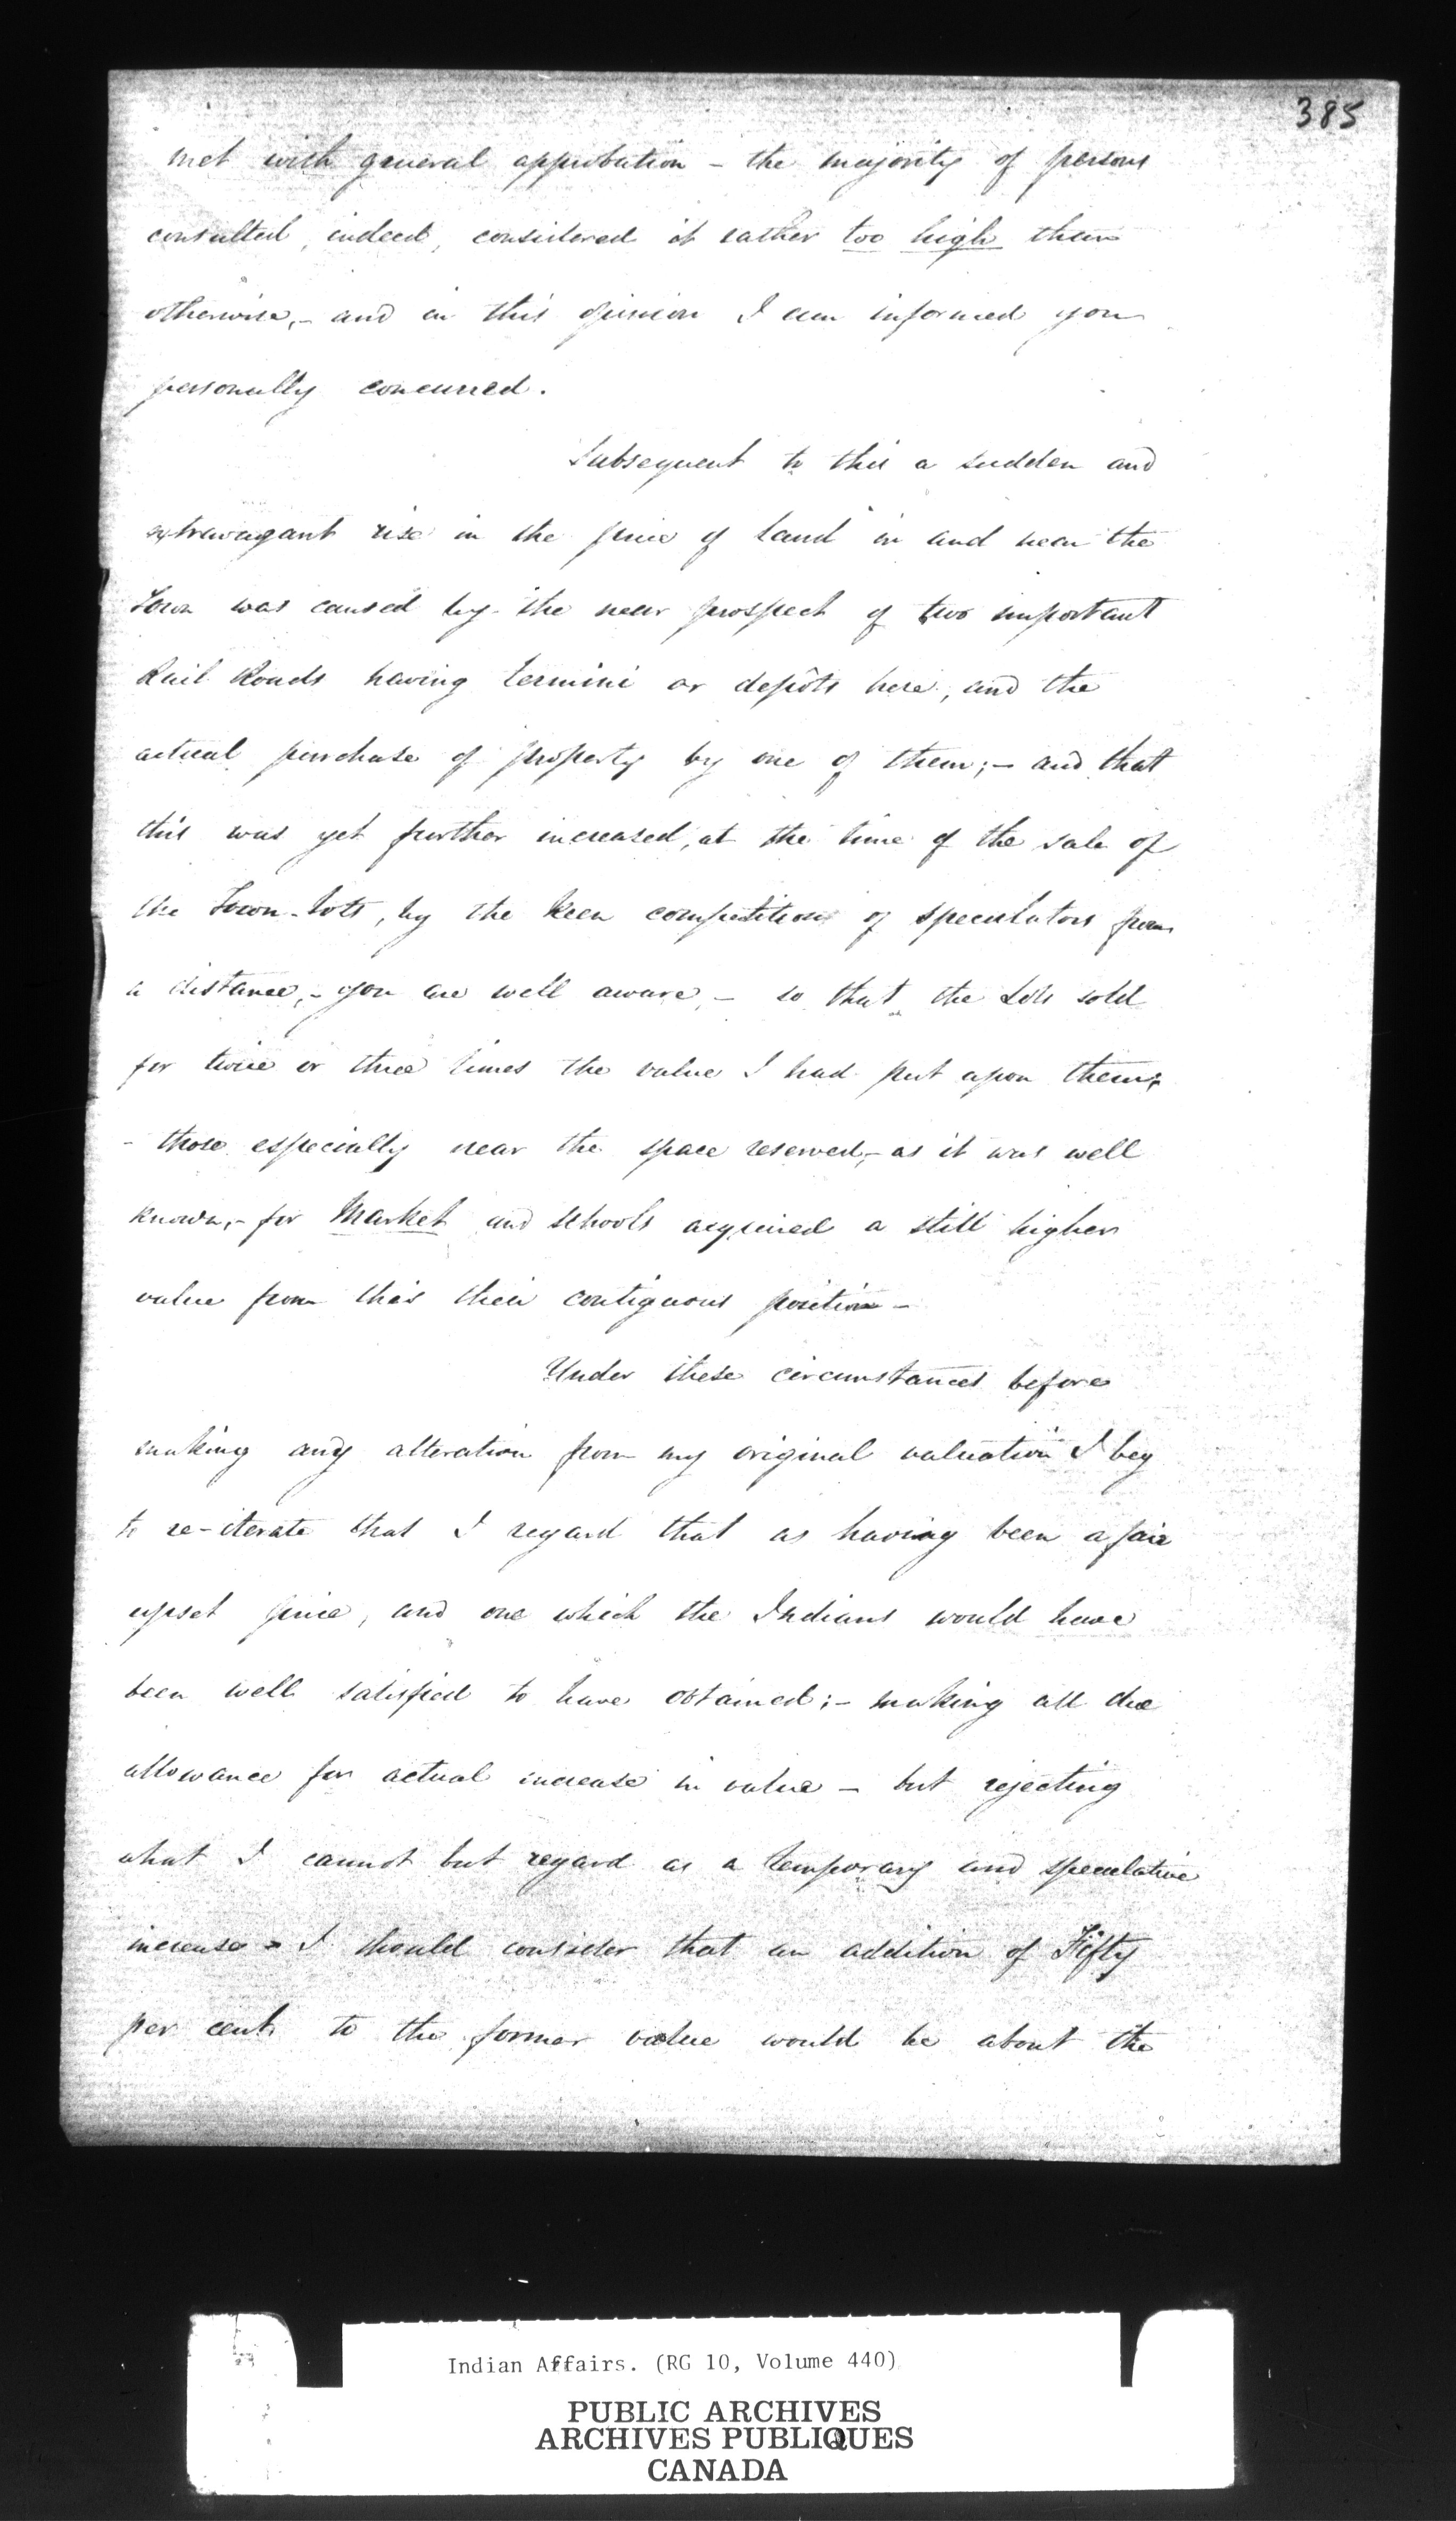 385
met with general approbation – the majority of persons
consulted, indeed, considered it rather too high than
otherwise, – and in this opinion I am informed you
personally concurred.
Subsequent to this a sudden and
extravagant rise in the price of land in and near the
Town was caused by the near prospect of two important
Rail Roads having termini or depôts here, and the
actual purchase of property by one of them; – and that
this was yet further increased, at the time of the sale of
the Town-lots, by the keen competition of speculators from
a distance, – you are well aware, – so that the Lots sold
for twice or three times the value I had put upon them;
– those especially near the space reserved, – as it was well
known, – for Market and Schools acquired a still higher
value from this their contiguous position –
Under these circumstances before
making any alteration from my original valuation I beg
to re-iterate that I regard that as having been a fair
upset price, and one which the Indians would have
been well satisfied to have obtained; – making all due
allowance for actual increase in value – but rejecting
what I cannot but regard as a temporary and speculative
increase – I should consider that an addition of Fifty
per cent. to the former value would be about the
Indian Affairs. (RG 10, Volume 440)
PUBLIC ARCHIVES
ARCHIVES PUBLIQUES
CANADA